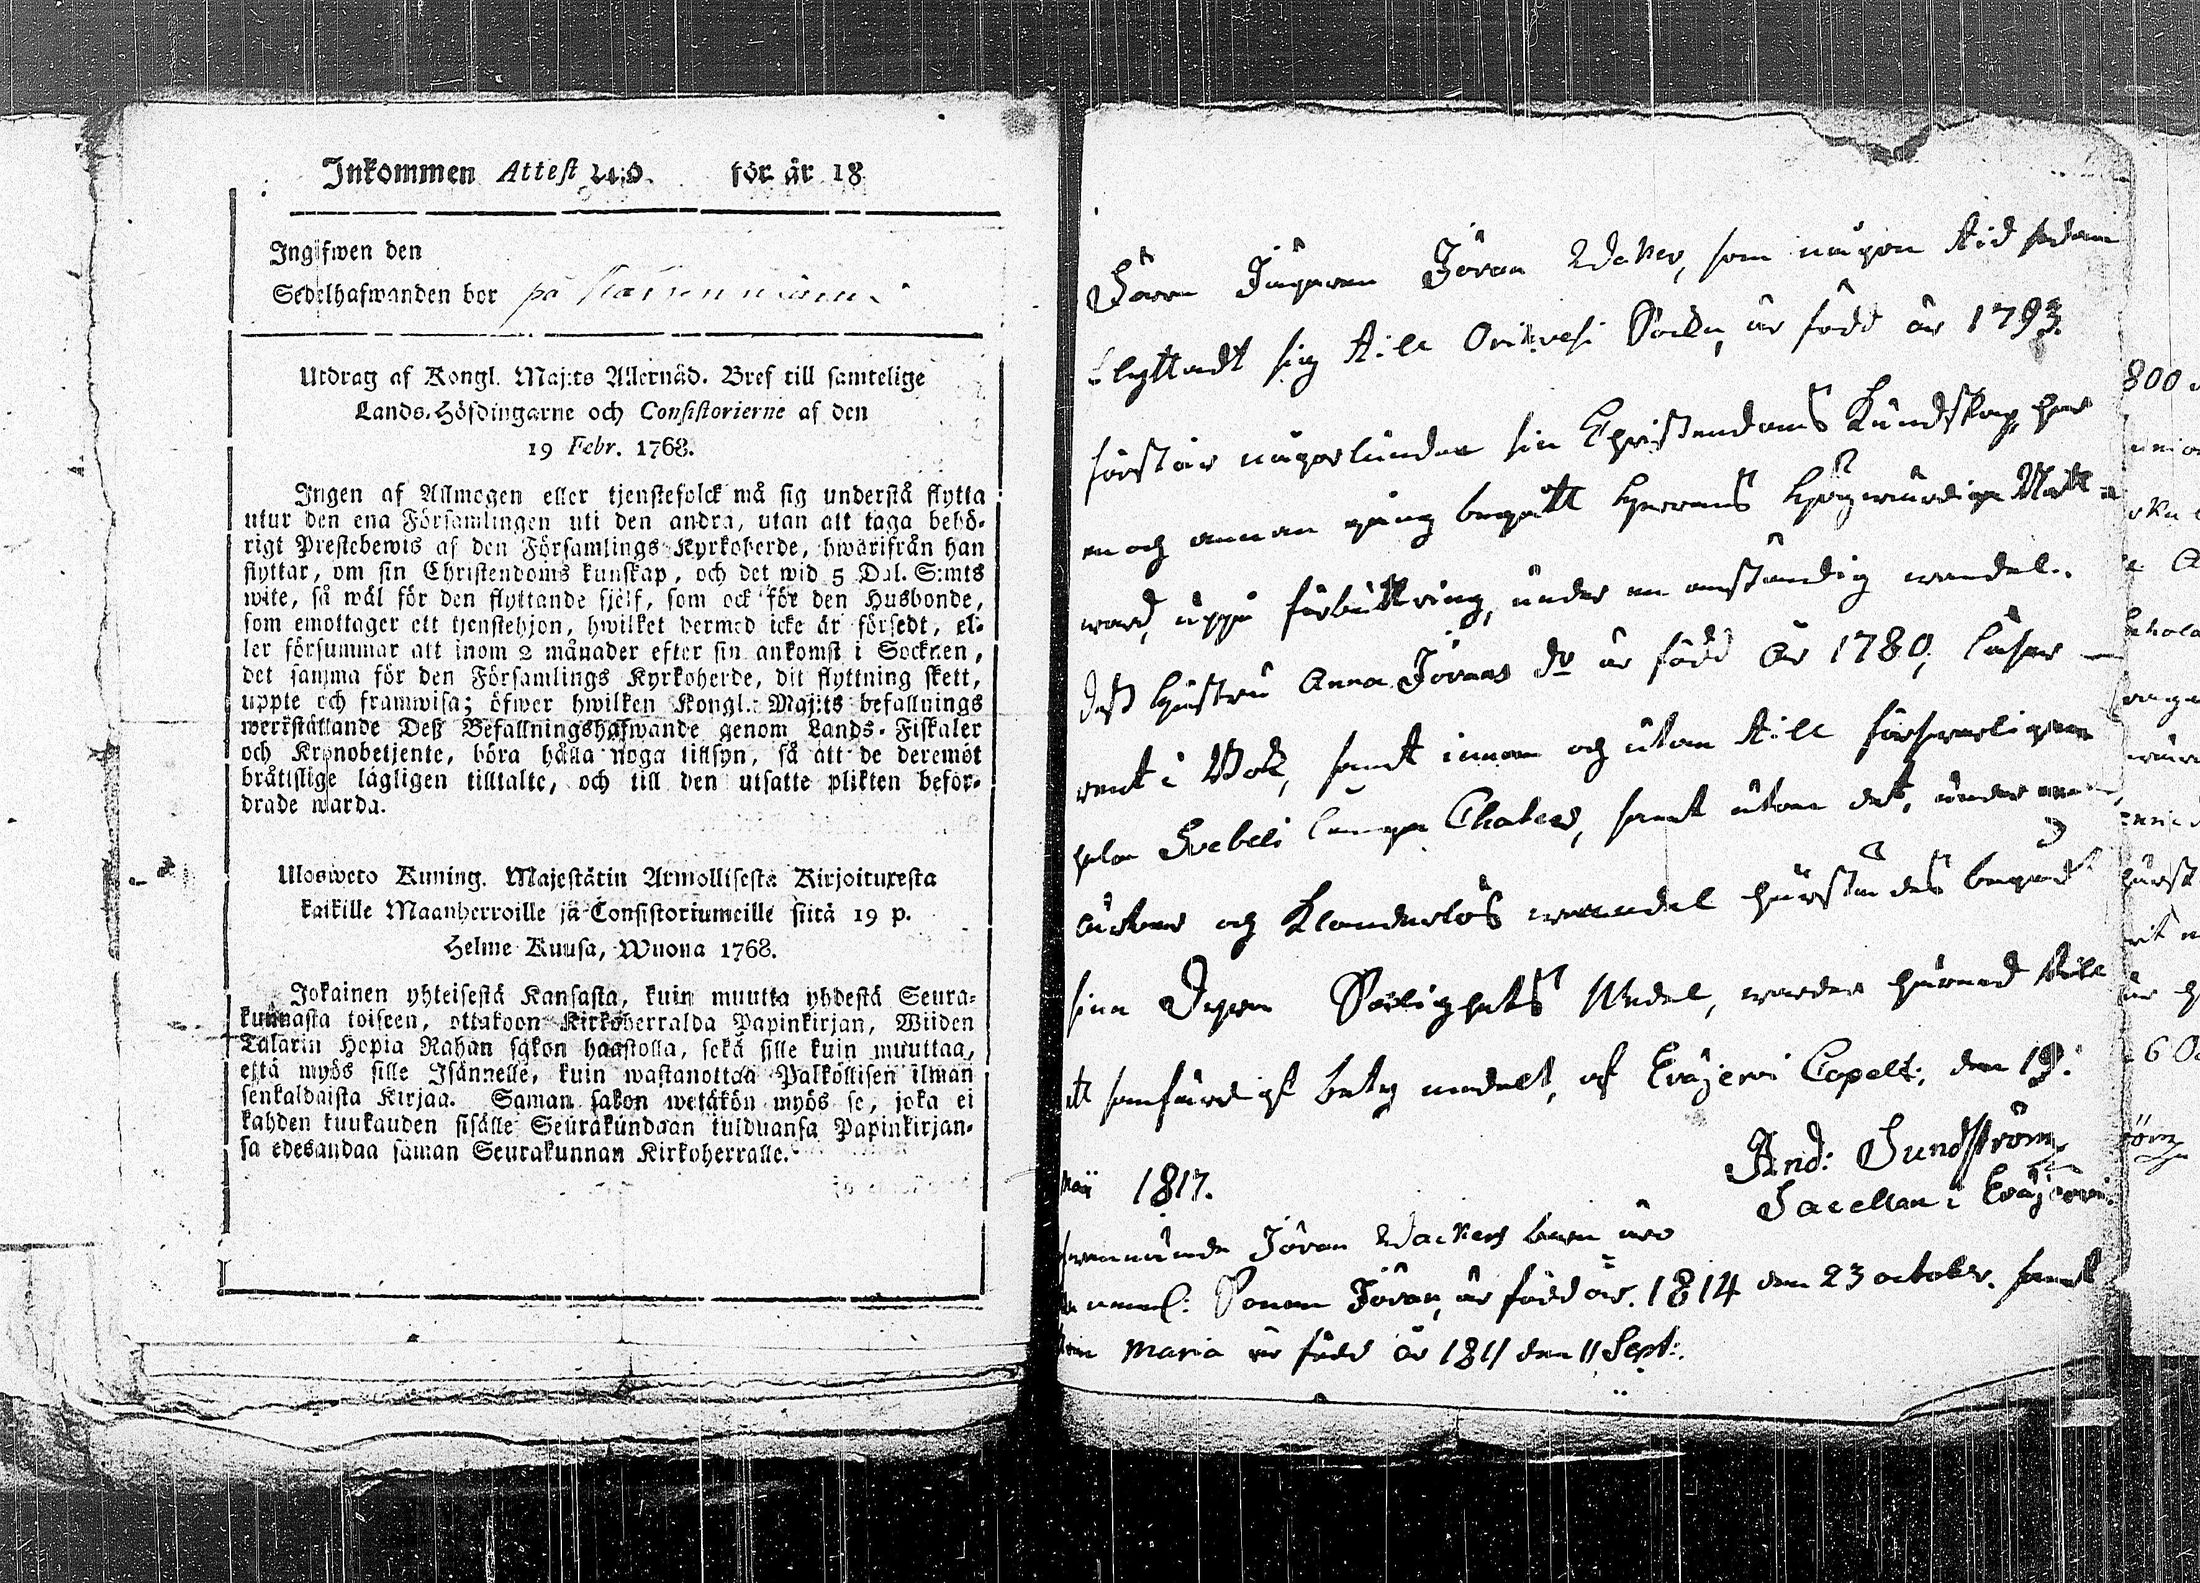 Inkommen Attest för år 18
Ingifwen den
Sedelhafwanden bor på
Utdrag af Kongl. Maj:ts Allernåd. Bref till samtelige
Lands-Höfdingarne och Consistorierne af den
19 Febr. 1768.
Ingen af Allmogen eller tjenstefolck må sig understå flytta
utur den ena Församlingen uti den andra, utan att taga behö-
rigt Prestebewis af den Församlings Kyrkoherde, hwarifrån han
flyttar, om sin Christendoms kunskap, och det wid 5 Dal. S:mts
wite, så wäl för den flyttande sjelf, som ock för den Husbonde,
som emottager ett tjenstehjon, hwilket dermed icke är försedt, el-
ler försummar att inom 2 månader efter sin ankomst i Socknen,
det samma för den Församlings Kyrkoherde, dit flyttning skett,
uppte och framwisa; öfwer hwilken Kongl. Maj:ts befallnings
werkställande Deß Befallningshafwande genom Lands-Fiskaler
och Kronobetjente, böra hålla noga tillsyn, så att de deremot
bråttslige lagligen tilltalte, och till den utsatte plikten beför-
drade warda.
Ulosweto Kuning. Majestätin Armollisesta Kirjoituxesta
kaikille Maanherroille ja Consistoriumeille siitä 19 p.
Helme Kuusa, Wuona 1768.
Jokainen yhteisestä Kansasta, kuin muutta yhdestä Seura-
kunnasta toiseen, ottakoon Kirkoherralda Papinkirjan, Wiiden
Talarin Hopia Rahan sakon haastolla, sekä sille kuin muuttaa,
että myös sille Isännelle, kuin wastanottaa Palkollisen ilman
senkaldaista Kirjaa. Saman sakon wetäkön myös se, joka ei
kahden kuukauden sisälle Seurakundaan tulduansa Papinkirjan-
sa edesandaa saman Seurakunnan Kirkoherralle.
Jöran som någon tid sedan
flyttadt sig till Orihvesi Sockn, är född år 1793.
förstår någorlunda sin Christendoms Kundskap, har
en och annan gång begått Herrans Högwärdiga Natt-
ward, uppå förbättring, under en anständig wandel.
Deß hustru Anna Jörans dr är född år 1780, läser
rent i Bok, samt innan och utan till
Svebeli långa Chatec, samt utom det, under
och Klanderlös wandel begådt
sina Dyra Salighets Medel, warder härmed till
ett sanfärdigt betygmedelt, af Eräjervi Capell; den 19.
Maii 1817.
And: Sundström
Sacellan i Eräjervi
Jöran barn äro
Sonen Jöran, är född år. 1814 den 23 october. samt
Maria är född år 1811 den 11 Sept: